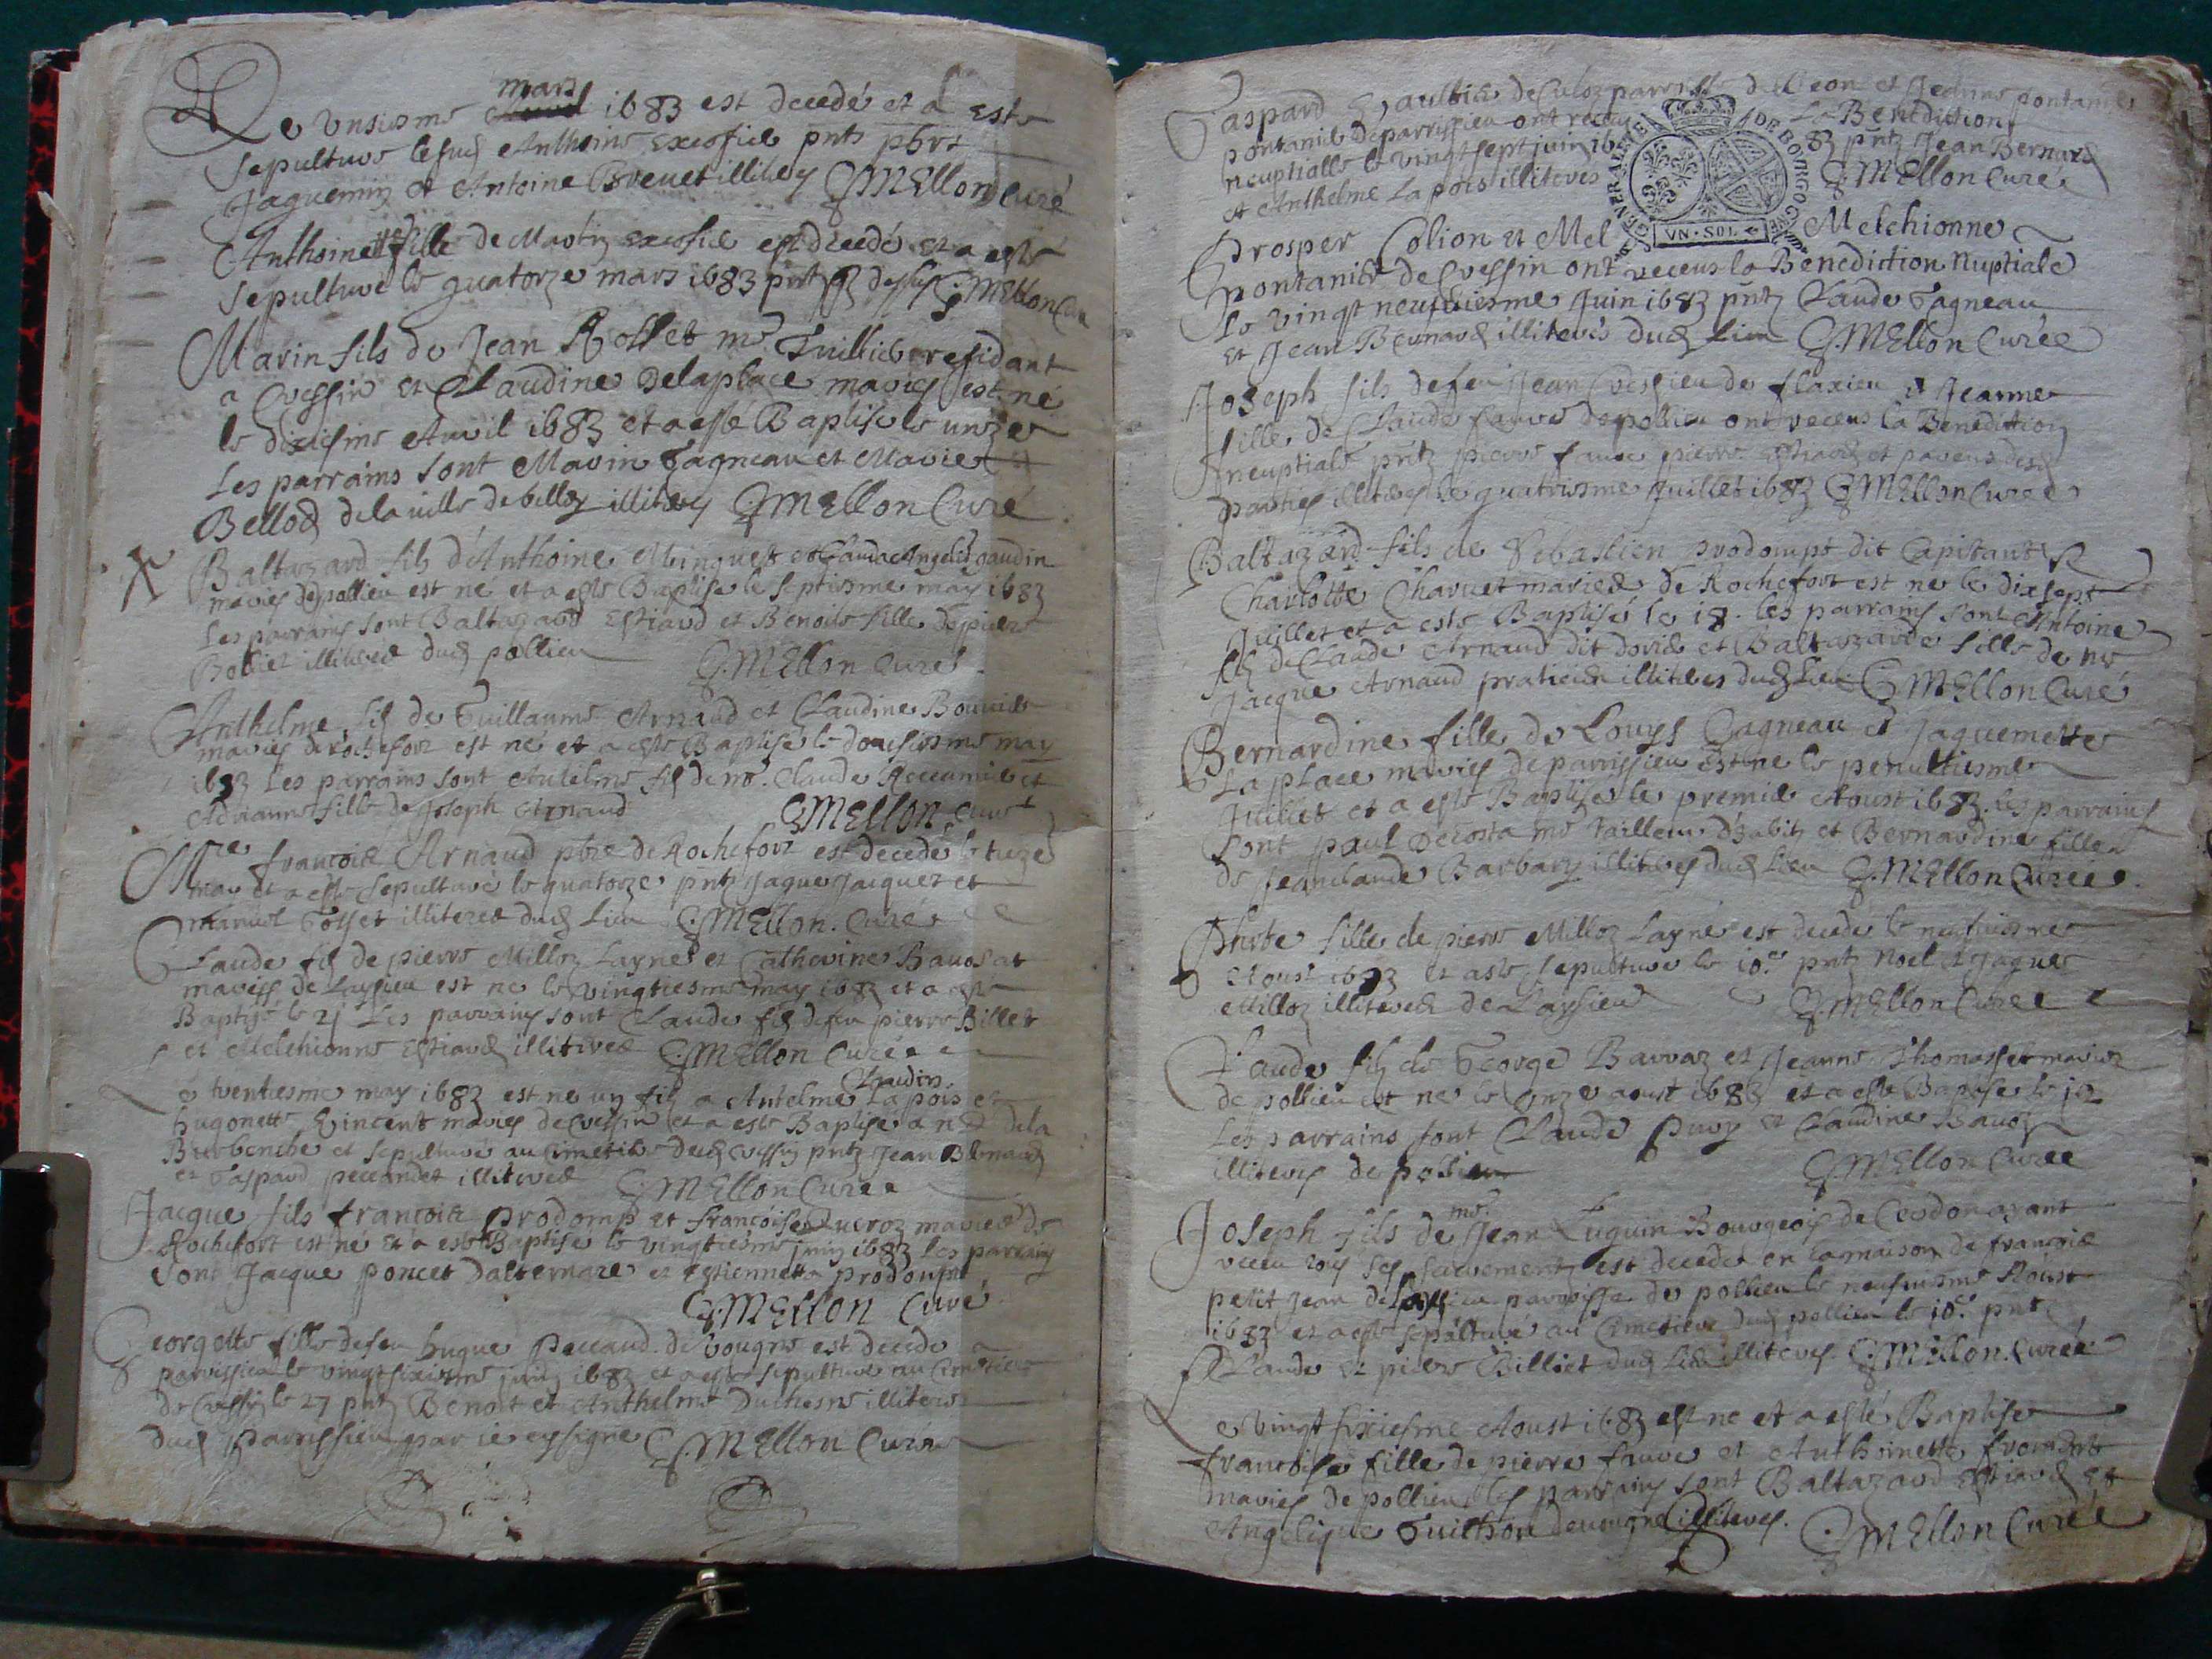 mars
Le unsiesme 1683 est decedé et a esté
sepulture Anthoine pnts pbre
Jaquemin et Antoine Brevet illiteres G. Mellon Curé
Anthoinette fille de Martin est decedé et a esté
sepulture le quatorze mars 1683 pnts G. Mellon Cu
Marin fils de Jean Rosset me residant
a Cressin et Claudine Delaplace mariés est né
le dixiesme Avril 1683 et a esté Baptisé le unze
Les parrains sont Marin Gagneau et Marie
Bellod de la ville de belley illiteres G. Mellon Curé
Baltazard fils d'Anthoine Minguest et gaudin
mariés de pollieu est né et a esté Baptisé le septiesme may 1683
Les parrains sont Baltazard Estiard et Benoite fille de pierre
Bolliet illiteres dud pollieu G. Mellon Curé
Anthelme fils de Guillaume Arnaud et Claudine Bouvier
mariés de rochefort est né et a esté Baptisé le may
1683 Les parrains sont Antelme fils de me Claude et
Adrianne fille de Joseph Arnaud G. Mellon Curé
Mre francois Arnaud pbre de Rochefort est decedé le
may et a esté sepulturé le quatorze pnts Jaque Jacquet et
illiteres dud Lieu G. Mellon Curé
Claude fils de pierre Milloz Layné et Catherine Bavosat
mariés de Laysieu est né le vingtiesme may 1683 et a esté
Baptisé le 21 Les parrains sont Claude fils de feu pierre Billet
et Melchionne Estiard illiteres G. Mellon Curé
Claudin
e trentiesme may 1683 est né un fils a Antelme Lapois et
hugonette Vincent mariés de Cressin et a esté Baptisé a de la
et sepulturé au Cimetiere dud Cressin pnts Jean Bernard
et Gaspard illiteres G. Mellon Curé
Jacque fils francois Prodomp et francoise Ducroz mariés de
Rochefort est né et a esté Baptisé le vingtiesme juin 1683 les parrains
sont Jacque poncet et Estiennette prodompt
G. Mellon Curé
Georgette fille de feu hugue Peccaud de vougne est decedé a
parrissieu le vingt sixiesme juin 1683 et a esté sepulturé au Cimetiere
de Cressin le 27 pnts Benoit et Anthelme Duchesne illiteres
dud parrissieu par je ey signé G. Mellon Curé
Gaspard Gaultier de Culoz et Jeanne pontanier
pontanier de parrissieu ont receu La Benediction
neuptialle le vingt sept juin 1683 pnts Jean Bernard
et Anthelme Lapois illiteres G. Mellon Curé
GENERALITE DE BOURGOGNE
VN·SOL
Prosper Colion et Mel Melchionne
pontanier de Cressin ont receus la Benediction Nuptiale
le vingt neufviesme Juin 1683 pnts Claude Gagneau
et Jean Bernard illiteres dud Lieu G. Mellon Curé
Joseph fils de feu Jean Cressieu de flaxieu et Jeanne
fille de Claude faure de pollieu ont receus la Benediction
neuptiale pnts pierre faure pierre Estiard et parens desd
parties illiteres le quatriesme Juillet 1683 G. Mellon Curé
Baltazard fils de Sebastien prodompt dit Capitant et
Charlotte Charvet mariés de Rochefort est né le dix sept
Juillet et a esté Baptisé le 18. les parrains sont Antoine
fils de Claude Arnaud dit et Baltazarde fille de me
Jacque Arnaud praticien illiteres dud Lieu G. Mellon Curé
Bernardine fille de Louys Gagneau et Jaquemette
Laplace mariés de parrissieu est né le penultiesme
Juillet et a esté Baptisé le premier Aoust 1683 les parrains
sont paul Decosta me tailleur d'habits et Bernardine fille
de Jeanclaude Barbary illiteres dud Lieu G. Mellon Curé
fille de pierre Milloz Layné est decedé le neufviesme
Aoust 1683 et a esté sepulture le 10e pnts Noel et Jaque
Milloz illiteres de Laysieu G. Mellon Curé
Claude fils de George Barraz et Jeanne Thomasset mariez
de pollieu est né le unze aoust 1683 et a esté Baptisé le 12
Les parrains sont Claude Puvy et Claudine
illiteres de pollieu G. Mellon Curé
me
Joseph fils de Jean Luguin Bourgeois de Cerdon ayant
receu tous ses sacrements est decedé en la maison de francois
petit Jean de Laysieu parroisse de pollieu le neufviesme Aoust
1683 et a esté sepulturé au Cimetiere dud pollieu le 10e pnts
Claude et pierre Billiet dud Lieu illiteres G. Mellon Curé
Le vingt sixiesme Aoust 1683 est né et a esté Baptisé
francoise fille de pierre faure et Anthoinette froment
mariés de pollieu les parrains sont Baltazard Estiard et
Angelique Guilhon de vougne illiteres. G. Mellon Curé